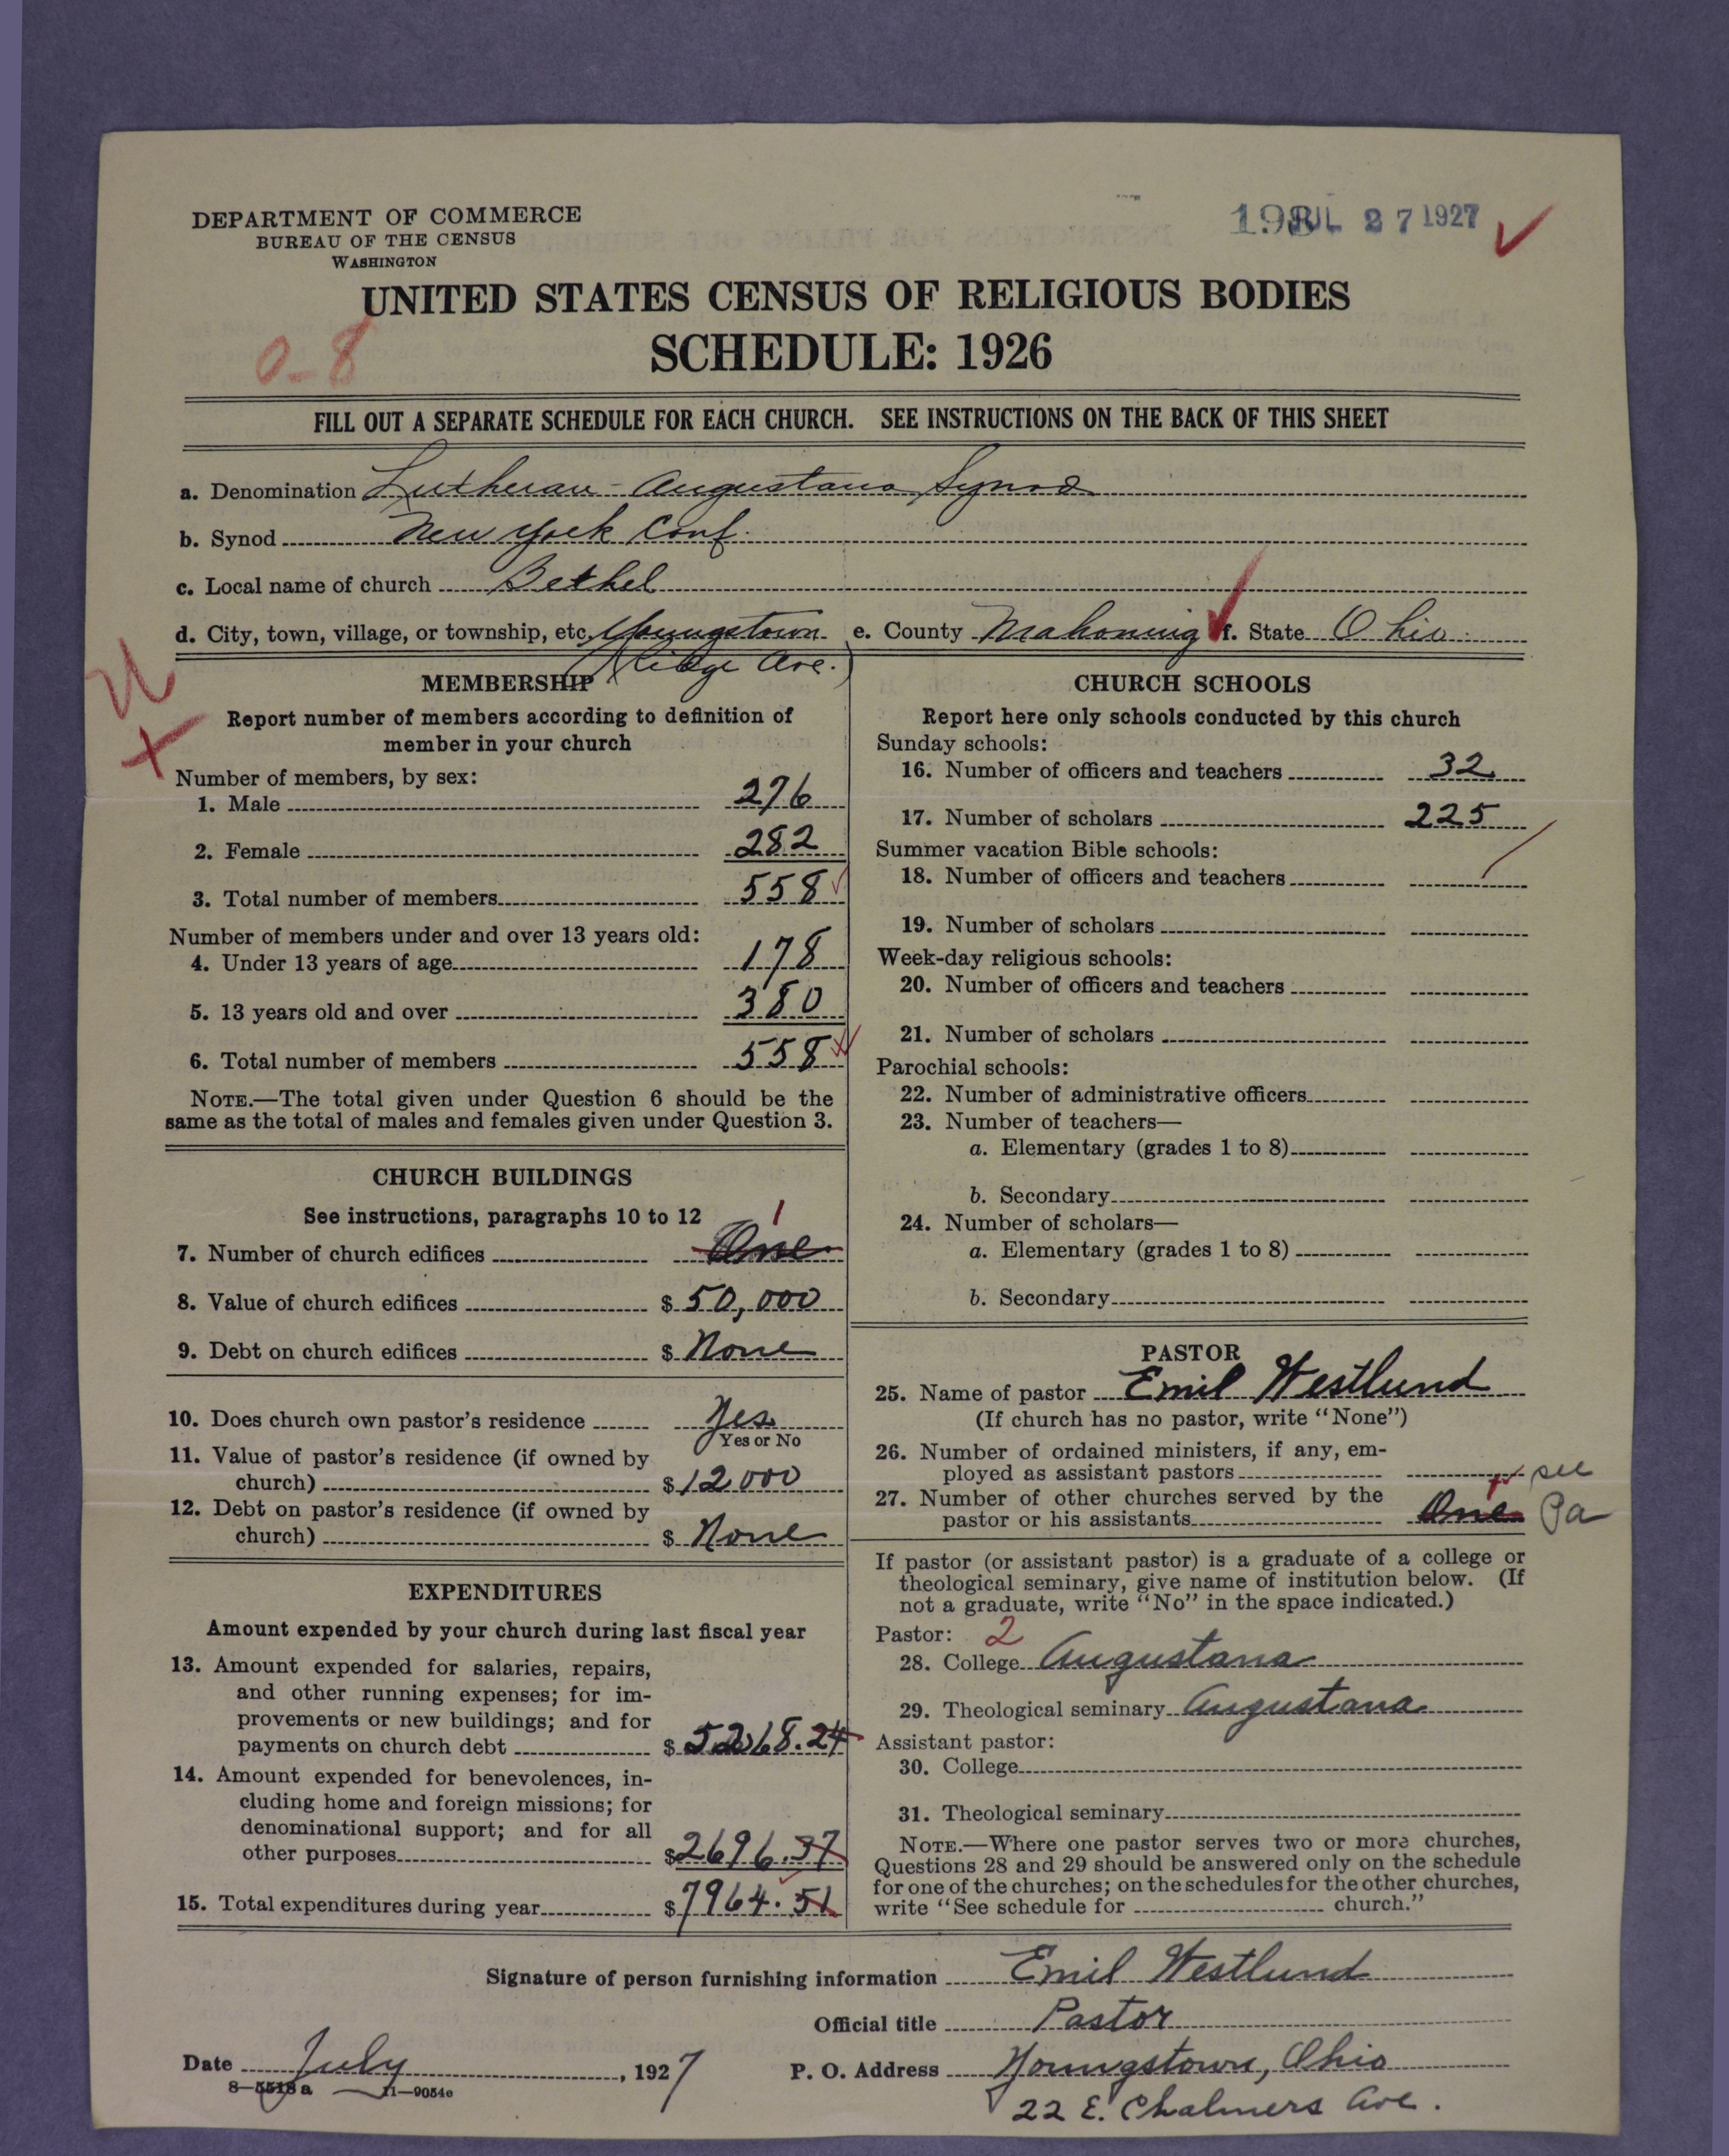 DEPARTMENT OF COMMERCE
BUREAU OF THE CENSUS
WASHINGTON
JUL 27 1927
UNITED STATES CENSUS OF RELIGIOUS BODIES
SCHEDULE: 1926
0-8
FILL OUT A SEPARATE SCHEDULE FOR EACH CHURCH. SEE INSTRUCTIONS ON THE BACK OF THIS SHEET
a. Denomination Lutheran - Augustana Synod
b. Synod New York Conf.
c. Local name of church Bethel
d. City, town, village, or township, etc. Youngstown e. County Mahoning f. State Ohio
Ave.
MEMBERSHIP
Report number of members according to definition of
member in your church
Number of members, by sex:
1. Male 276
2. Female 282
3. Total number of members 558
Number of members under and over 13 years old:
4. Under 13 years of age 178
5. 13 years old and over 380
6. Total number of members 558
NOTE.—The total given under Question 6 should be the
same as the total of males and females given under Question 3.
CHURCH BUILDINGS
See instructions, paragraphs 10 to 12
1
7. Number of church edifices One
8. Value of church edifices $ 50,000
9. Debt on church edifices $ None
10. Does church own pastor's residence Yes
Yes or No
11. Value of pastor's residence (if owned by
church) $ 12000
12. Debt on pastor's residence (if owned by
church) $ None
EXPENDITURES
Amount expended by your church during last fiscal year
13. Amount expended for salaries, repairs,
and other running expenses; for im-
provements or new buildings; and for
payments on church debt $ 5268.24
14. Amount expended for benevolences, in-
cluding home and foreign missions; for
denominational support; and for all
other purposes $ 2696.37
15. Total expenditures during year $ 7964.51
CHURCH SCHOOLS
Report here only schools conducted by this church
Sunday schools:
16. Number of officers and teachers 32
17. Number of scholars 225
Summer vacation Bible schools:
18. Number of officers and teachers
19. Number of scholars
Week-day religious schools:
20. Number of officers and teachers
21. Number of scholars
Parochial schools:
22. Number of administrative officers
23. Number of teachers—
a. Elementary (grades 1 to 8)
b. Secondary
24. Number of scholars—
a. Elementary (grades 1 to 8)
b. Secondary
PASTOR
25. Name of pastor Emil Westlund
(If church has no pastor, write "None")
26. Number of ordained ministers, if any, em-
ployed as assistant pastors see
27. Number of other churches served by the
pastor or his assistants One Pa
If pastor (or assistant pastor) is a graduate of a college or
theological seminary, give name of institution below. (If
not a graduate, write "No" in the space indicated.)
Pastor: 2
28. College Augustana
29. Theological seminary Augustana
Assistant pastor:
30. College
31. Theological seminary
NOTE.—Where one pastor serves two or more churches,
Questions 28 and 29 should be answered only on the schedule
for one of the churches; on the schedules for the other churches,
write "See schedule for church."
Signature of person furnishing information Emil Westlund
Official title Pastor
Date July, 1927 P. O. Address Youngstown, Ohio
8—5518 a 11—9054e
22 E. Chalmers Ave.